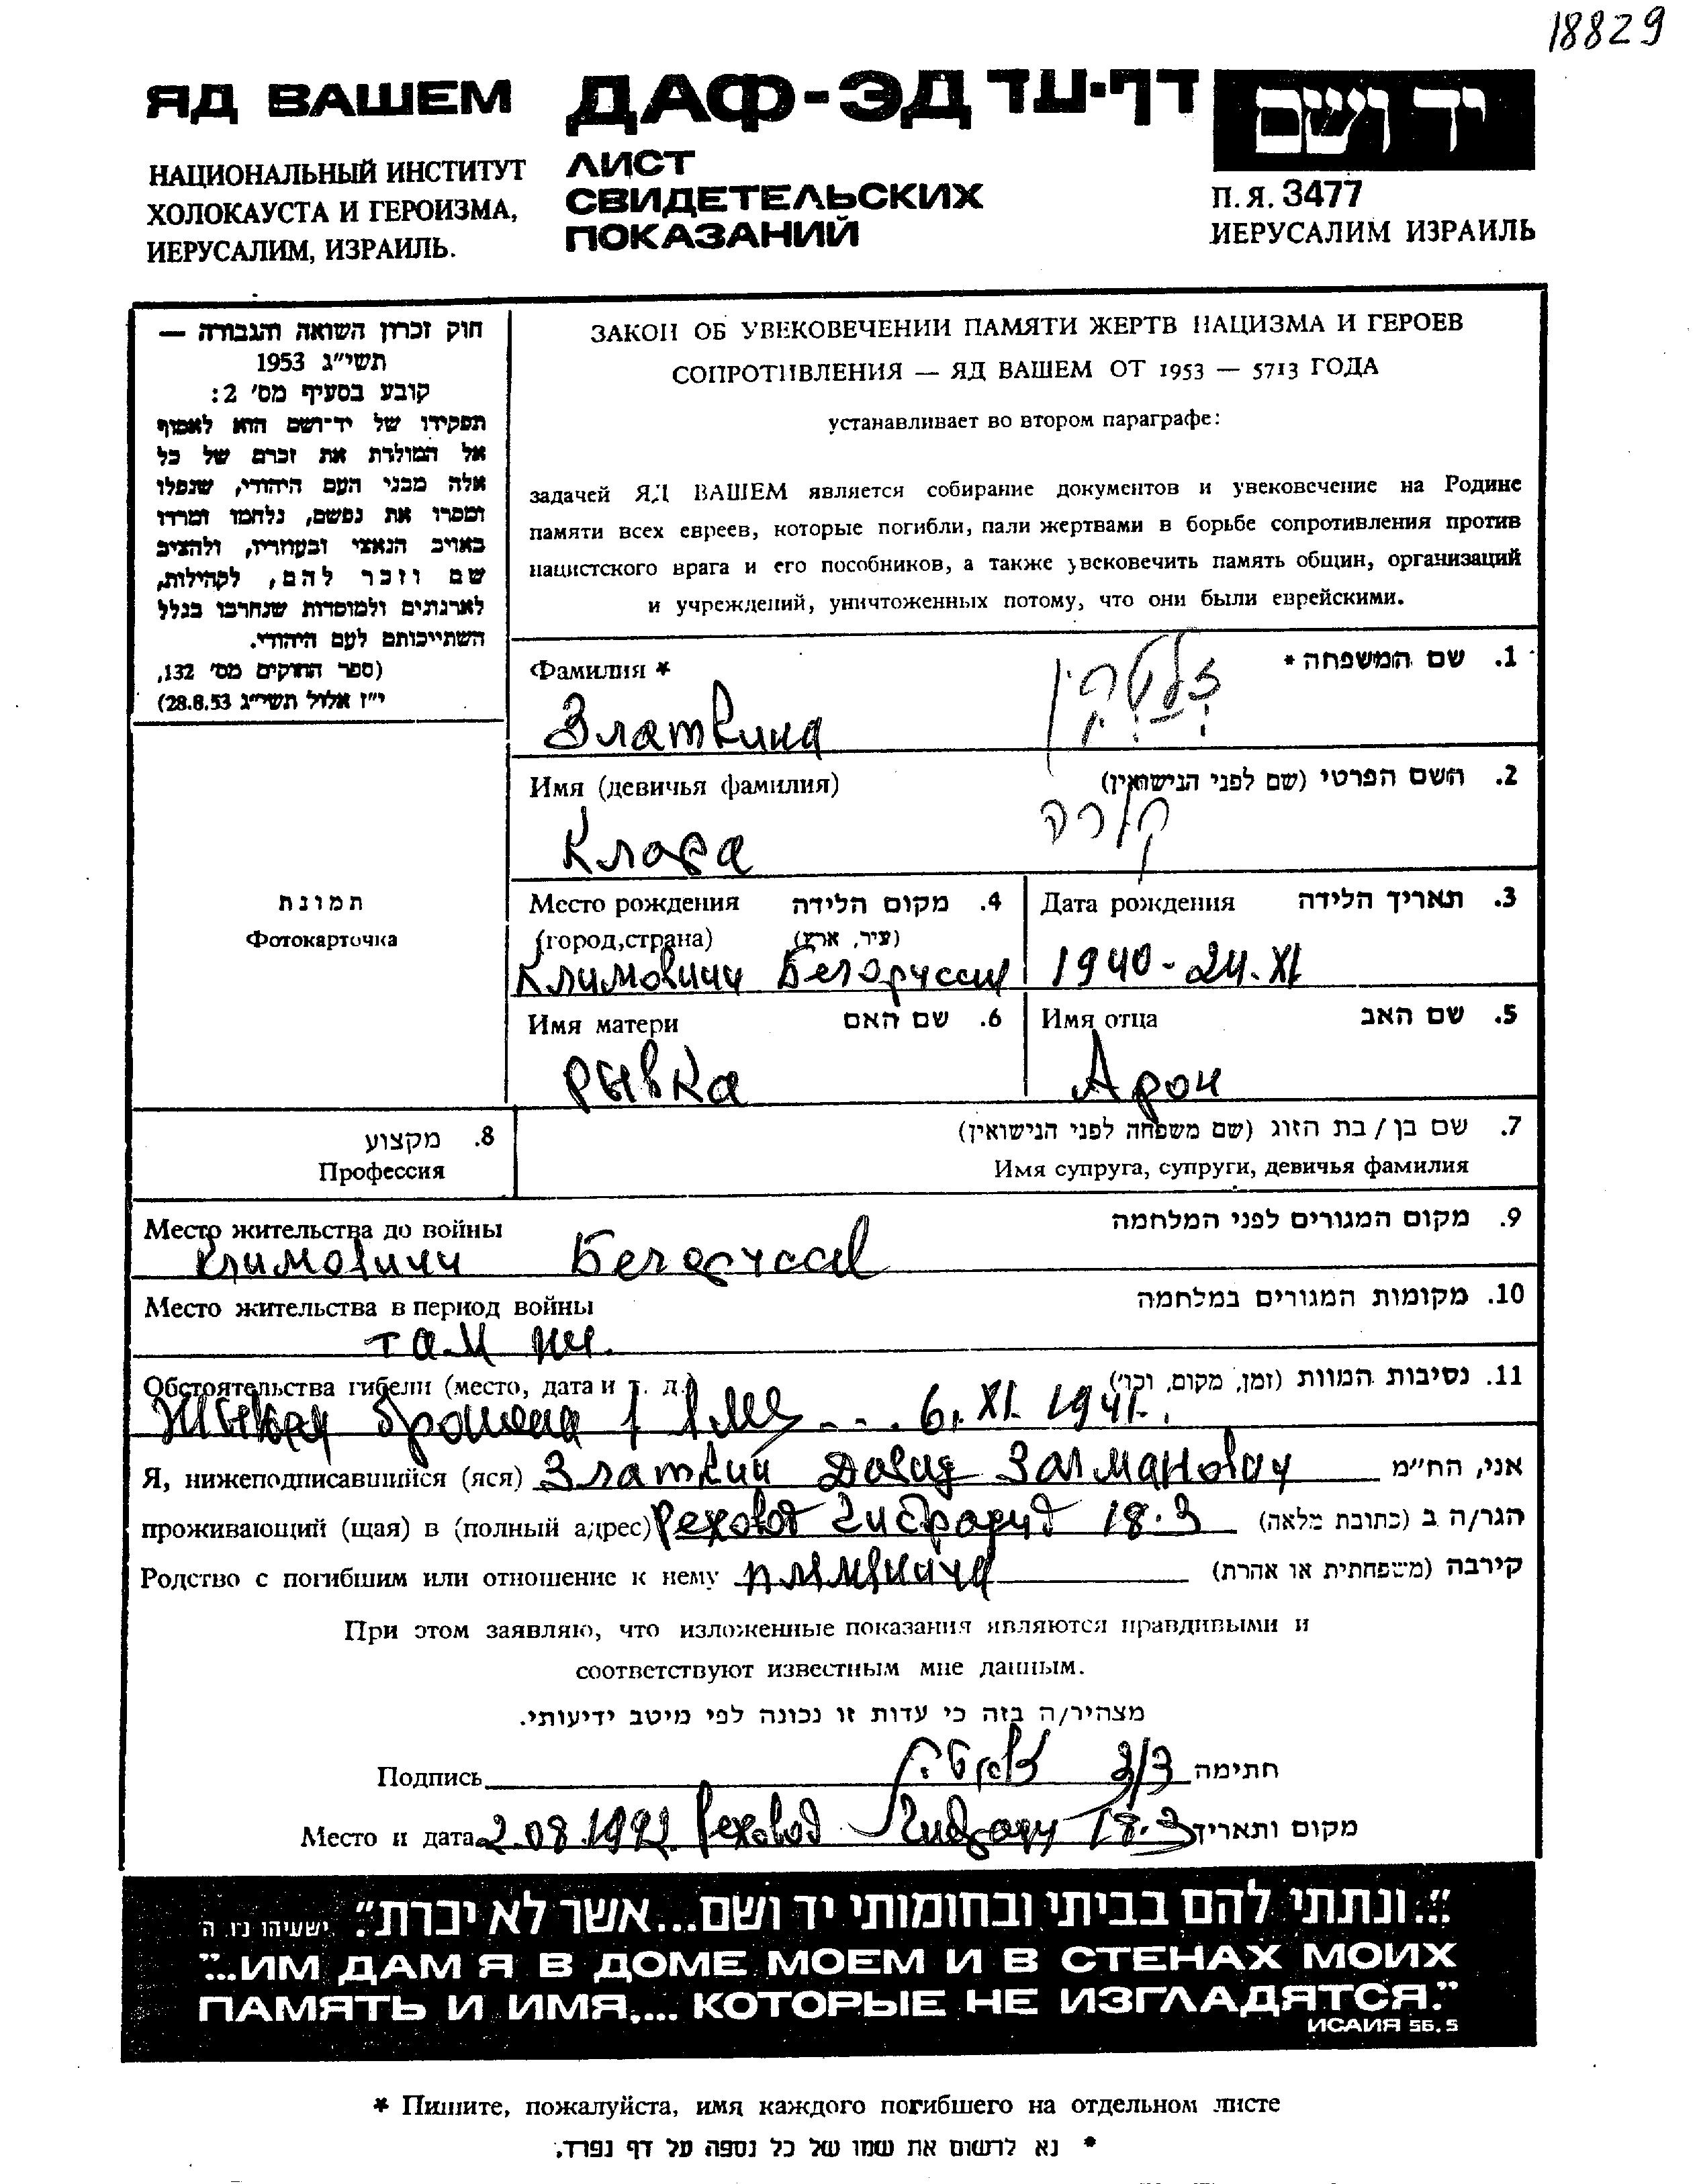 18829
ЯД ВАШЕМ ДАФ-ЭД דף-עד יד ושם
НАЦИОНАЛЬНЫЙ ИНСТИТУТ
ХОЛОКАУСТА И ГЕРОИЗМА,
ИЕРУСАЛИМ, ИЗРАИЛЬ.
ЛИСТ
СВИДЕТЕЛЬСКИХ
ПОКАЗАНИЙ
П.Я. 3477
ИЕРУСАЛИМ ИЗРАИЛЬ
חוק זכרון השואה והגבורה —
תשי"ג 1953
קובע בסעיף מס' 2:
תפקידו של יד-ושם הוא לאסוף
אל המולדת את זכרם של כל
אלה מבני העם היהודי, שנפלו
ומסרו את נפשם, נלחמו ומרדו
באויב הנאצי ובעוזריו, ולהציב
שם וזכר להם, לקהילות,
לארגונים ולמוסדות שנחרבו בגלל
השתייכותם לעם היהודי.
(ספר החוקים מס' 132,
י"ז אלול תשי"ג 28.8.53)
ЗАКОН ОБ УВЕКОВЕЧЕНИИ ПАМЯТИ ЖЕРТВ НАЦИЗМА И ГЕРОЕВ
СОПРОТИВЛЕНИЯ — ЯД ВАШЕМ ОТ 1953 — 5713 ГОДА
устанавливает во втором параграфе:
задачей ЯД ВАШЕМ является собирание документов и увековечение на Родине
памяти всех евреев, которые погибли, пали жертвами в борьбе сопротивления против
нацистского врага и его пособников, а также увековечить память общин, организаций
и учреждений, уничтоженных потому, что они были еврейскими.
Фамилия * 1. שם המשפחה *
Златкина זלטקין
Имя (девичья фамилия) 2. השם הפרטי (שם לפני הנישואין)
Клара קלרה
תמונת
Фотокарточка
Место рождения 4. מקום הלידה
(город,страна) (עיר, ארץ)
Климовичи Белоруссия
Дата рождения 3. תאריך הלידה
1940 - 24. XI
Имя матери 6. שם האם
Рывка
Имя отца 5. שם האב
Арон
8. מקצוע
Профессия
7. שם בן / בת הזוג (שם משפחה לפני הנישואין)
Имя супруга, супруги, девичья фамилия
Место жительства до войны 9. מקום המגורים לפני המלחמה
Климовичи Белоруссия
Место жительства в период войны 10. מקומות המגורים במלחמה
там же.
Обстоятельства гибели (место, дата и т. д.) 11. נסיבות המוות (זמן, מקום, וכו')
Живая брошена в яму 6. XI. 1941.
Я, нижеподписавшийся (яся) Златкин Давид Залманович אני, הח"מ
проживающий (щая) в (полный адрес) Реховот 18.3 הגר/ה ב (כתובת מלאה)
Родство с погибшим или отношение к нему племяница קירבה (משפחתית או אחרת)
При этом заявляю, что изложенные показания являются правдивыми и
соответствуют известным мне данным.
מצהיר/ה בזה כי עדות זו נכונה לפי מיטב ידיעותי.
Подпись חתימה
Место и дата 2.08.1992 Реховод 18.3 מקום ותאריך
"...ונתתי להם בביתי ובחומותי יד ושם...אשר לא יכרת". ישעיהו נו, ה
"...ИМ ДАМ Я В ДОМЕ МОЕМ И В СТЕНАХ МОИХ
ПАМЯТЬ И ИМЯ,... КОТОРЫЕ НЕ ИЗГЛАДЯТСЯ."
ИСАИЯ 56.5
* Пишите, пожалуйста, имя каждого погибшего на отдельном листе
* נא לרשום את שמו של כל נספה על דף נפרד.